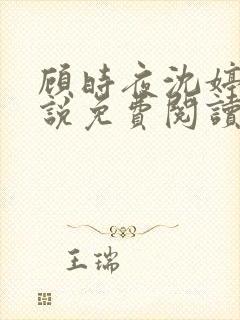 顾時夜沈婷
說免費閱讀
王瑞